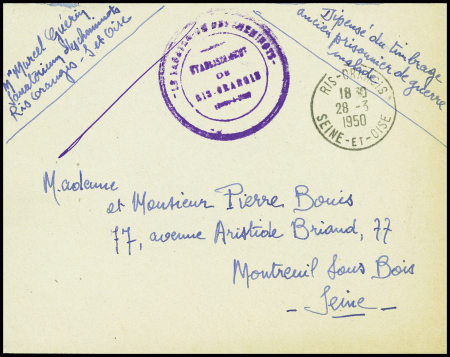 Mr Marcel Guérin
Sanatorium des cheminots
Ris Orangis. S et Oise
ETABLISSEMENT
DE
RIS-ORANGIS
Dispensé du timbrage
ancien prisonnier de guerre
malade
RIS-ORANGIS
18 30
28 - 3
1950
SEINE-ET-OISE
Madame
et Monsieur Pierre Bouis
77, avenue Aristide Briand, 77
Montreuil Sous Bois
- Seine -